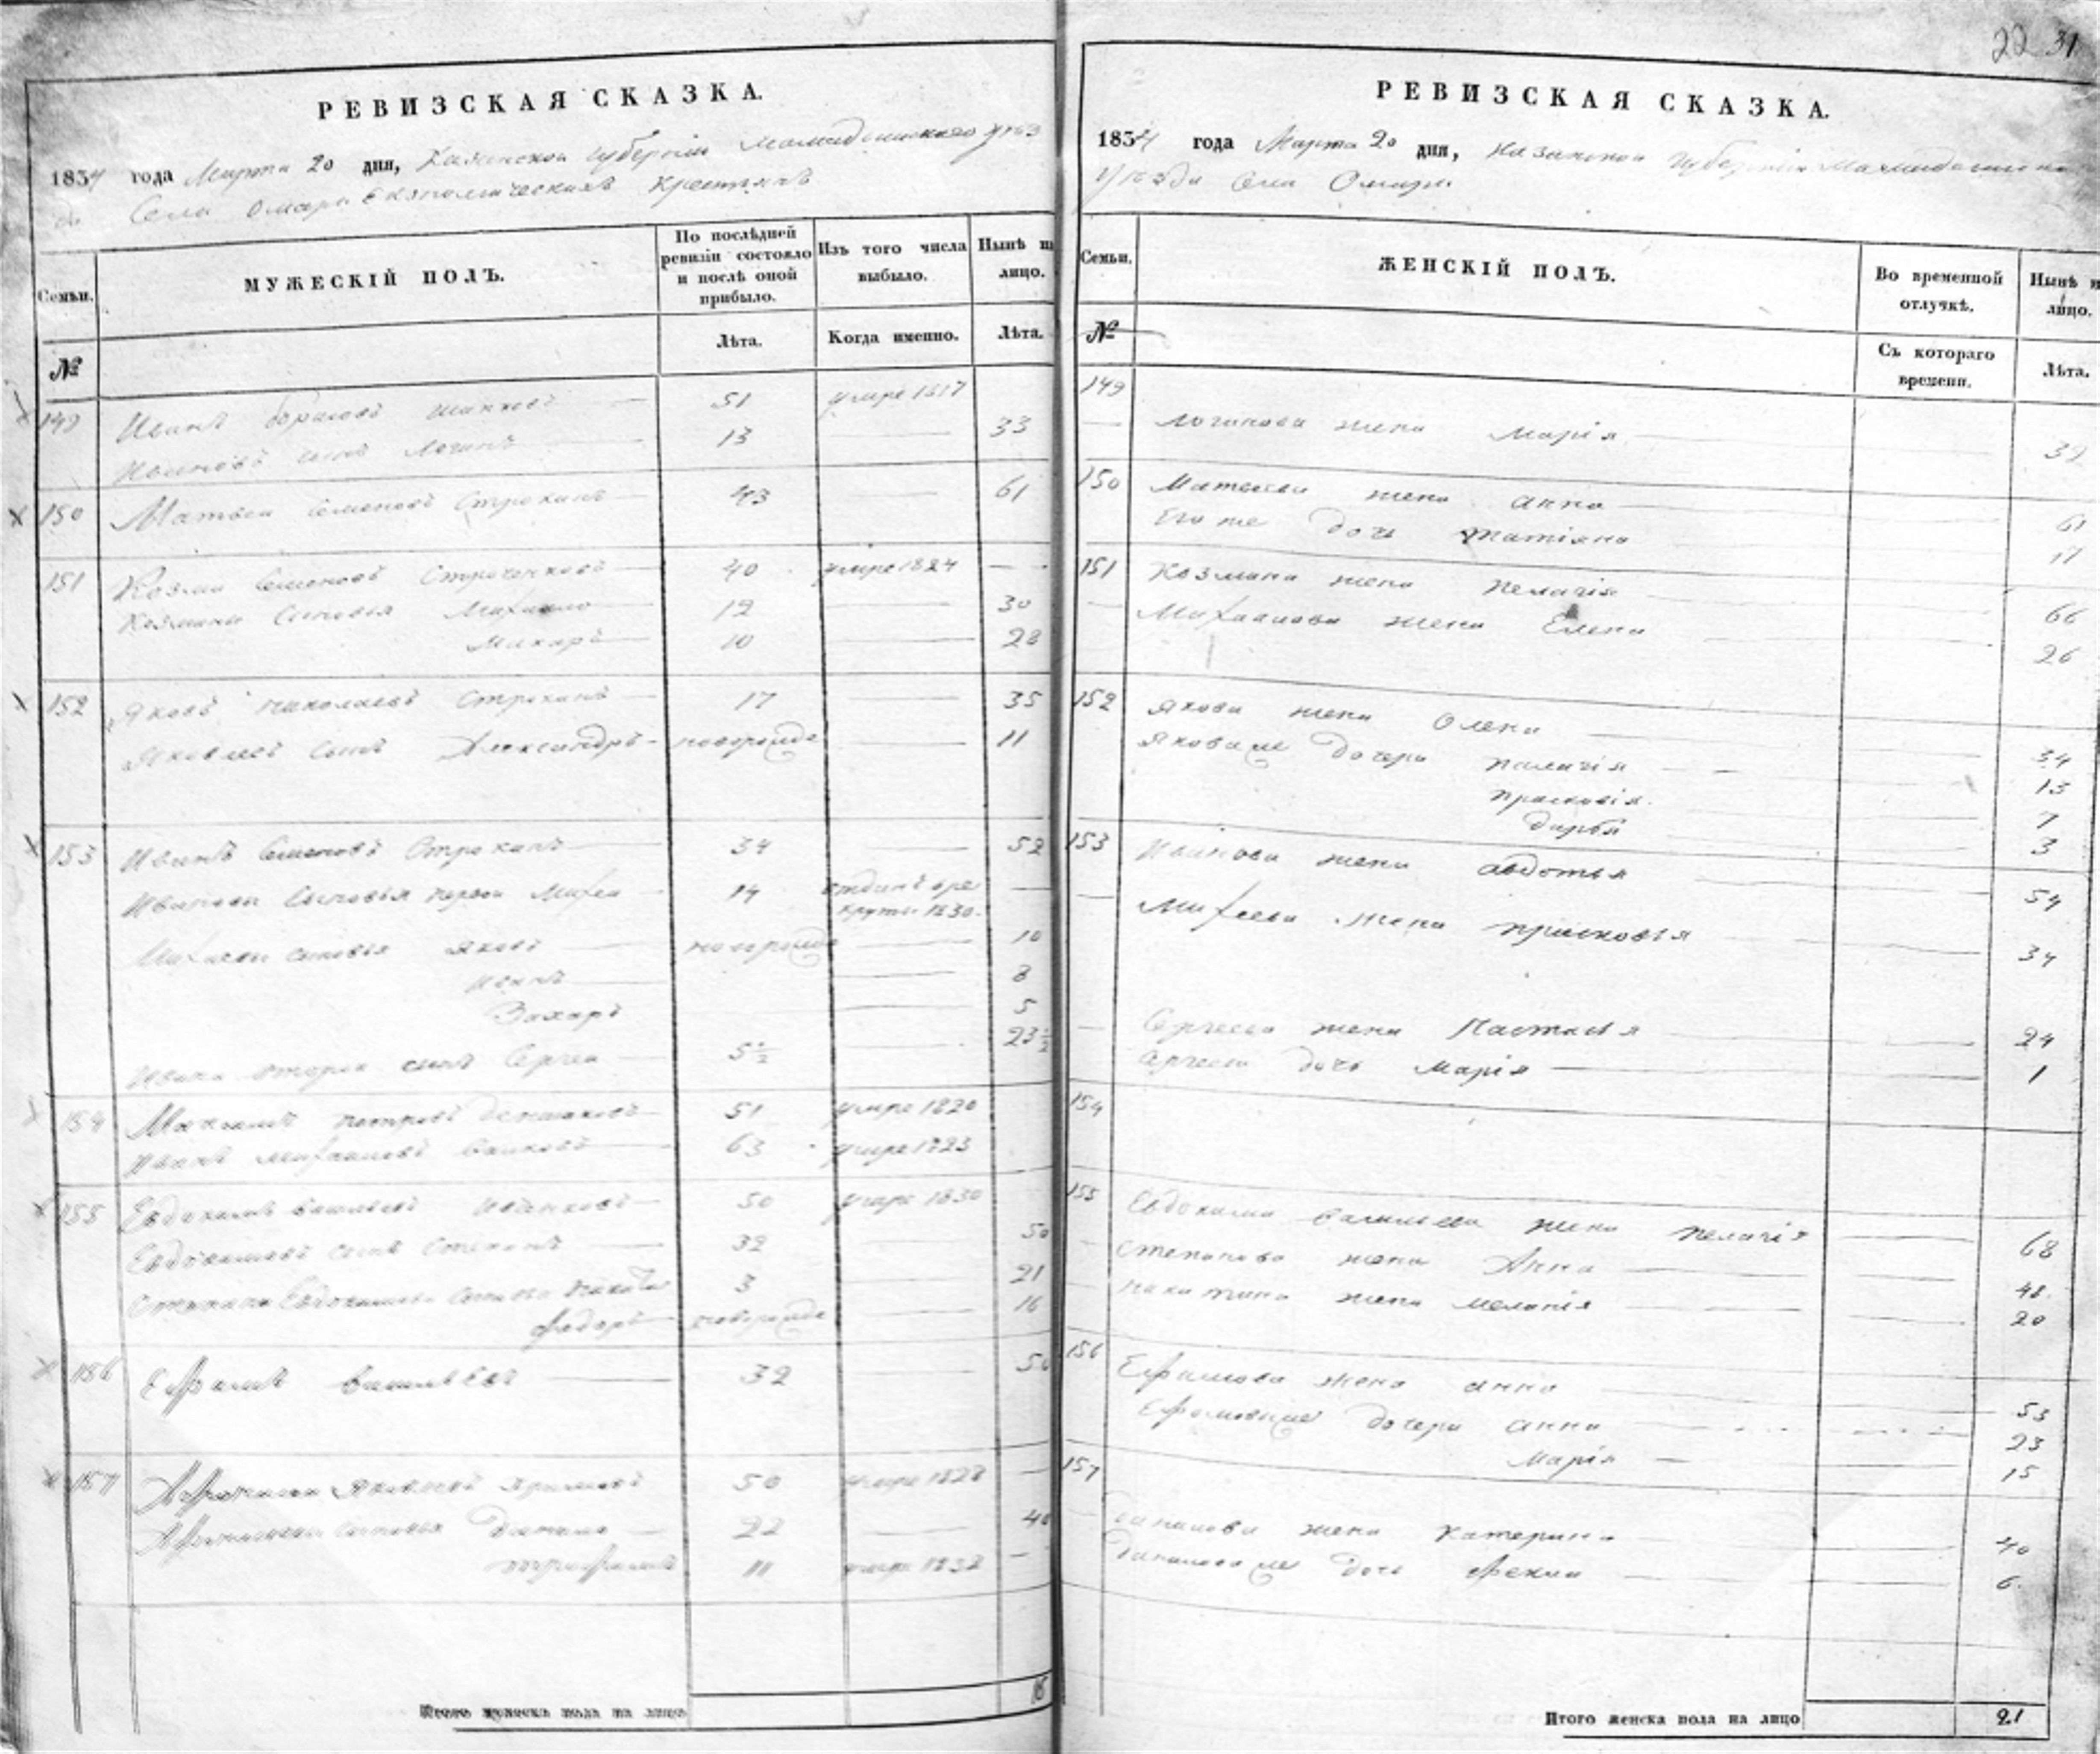 22 31
РЕВИЗСКАЯ СКАЗКА.
1834 года Марта 20 дня, Казанской губерніи Мамадышского уѣз
да Села Омары Економическихъ Крестьянъ
Семьи.
МУЖЕСКІЙ ПОЛЪ.
По послѣдней ревизіи состояло и послѣ оной прибыло.
Изъ того числа выбыло.
Нынѣ на лицо.
№
Лѣта.
Когда именно.
Лѣта.
149 Иванъ 51 умре 1817
Ивановъ сынъ Логинъ 13 33
150 Матвеи Семеновъ Строкинъ 43 61
151 Козма Семеновъ 40 умре 1824
Козмины Сыновья Михаило 12 30
Макаръ 10 28
152 Яковъ Николаевъ Строкинъ 17 35
Яковлевъ Сынъ Александръ новорожде 11
153 Иванъ Семеновъ Строкинъ 34 52
Ивановы Сыновья первои Михеи 14 отданъ вре
круты 1830.
Михеевы сыновья Яковъ новорожде 10
Иванъ 8
Захаръ 5
Ивана второи сынъ Сергеи 5½ 23½
154 Петровъ 51 умре 1820
Иванъ Михаиловъ 63 умре 1823
155 Евдокимъ Васильевъ 50 умре 1830
Евдокимовъ сынъ Степанъ 32 50
Степана Евдокимова Сыновья Никита 3 21
Федоръ новорожде 16
156 Ефимъ Васильевъ 32 50
157 Яковлевъ 50 умре 1828
Сыновья Данило 22 40
Трофимъ 11 умре 1832
Итого мужеска пола на лицо
16
РЕВИЗСКАЯ СКАЗКА.
1834 года Марта 20 дня, Казанской Губерніи Мамадышскаго
Уѣзда Села Омары
Семьи.
ЖЕНСКІЙ ПОЛЪ.
Во временной отлучкѣ.
Нынѣ на лицо.
№
Съ котораго времени.
Лѣта.
149
Логинова жена Марія 32
150 Матвеева жена Анна 61
Его же дочь Татіяна 17
151 Козмина жена Пелагія 66
Михаилова жена Елена 26
152 Якова жена Олена 34
Якова же дочери Палагія 13
Прасковія. 7
Дарья 3
153 Иванова жена Авдотья 54
Михеева Жена Прасковья 34
Сергеева жена Настасья 24
Сергеева дочь Марія 1
154
155 Евдокима Васильева жена Пелагія 68
Степанова жена Анна 48.
Никитина жена Меланія 20
156 Ефимова жена Анна 53
Ефимовы же дочери Анна 23
Марія 15
157
Данилова жена Катерина 40
Данилова же дочь Фекла 6.
Итого женска пола на лицо
21